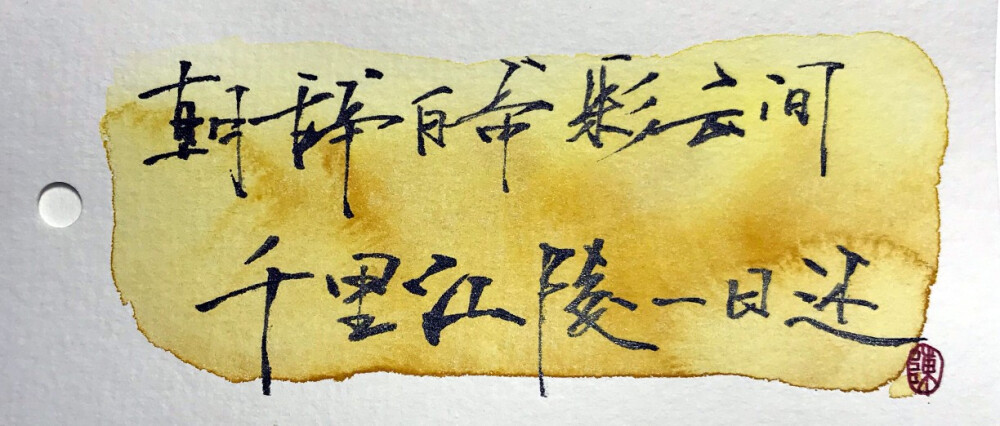 朝辞白帝彩云间
千里江陵一日还
陳